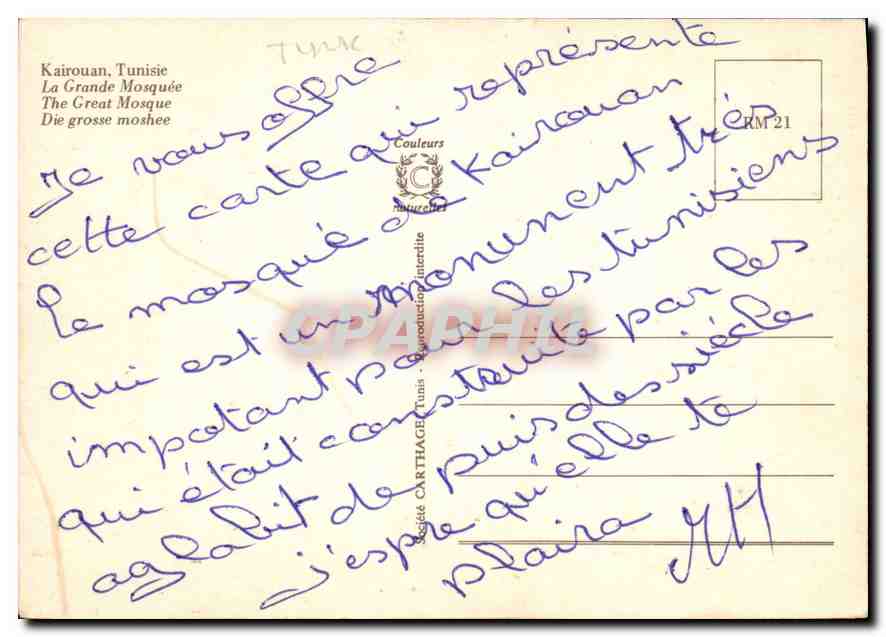 TURK
Kairouan, Tunisie
La Grande Mosquée
The Great Mosque
Die grosse moshee
Couleurs
C
naturelles
RM 21
Société CARTHAGE, Tunis - Reproduction interdite
CPAPHIL
Je vous offre
cette carte qui représente
le mosqué de Kairouan
qui est un monument trés
impotant pour les tunisiens
qui était constuite par les
aglabit de puis des siécle
j'espre qu'elle te
plaira MH